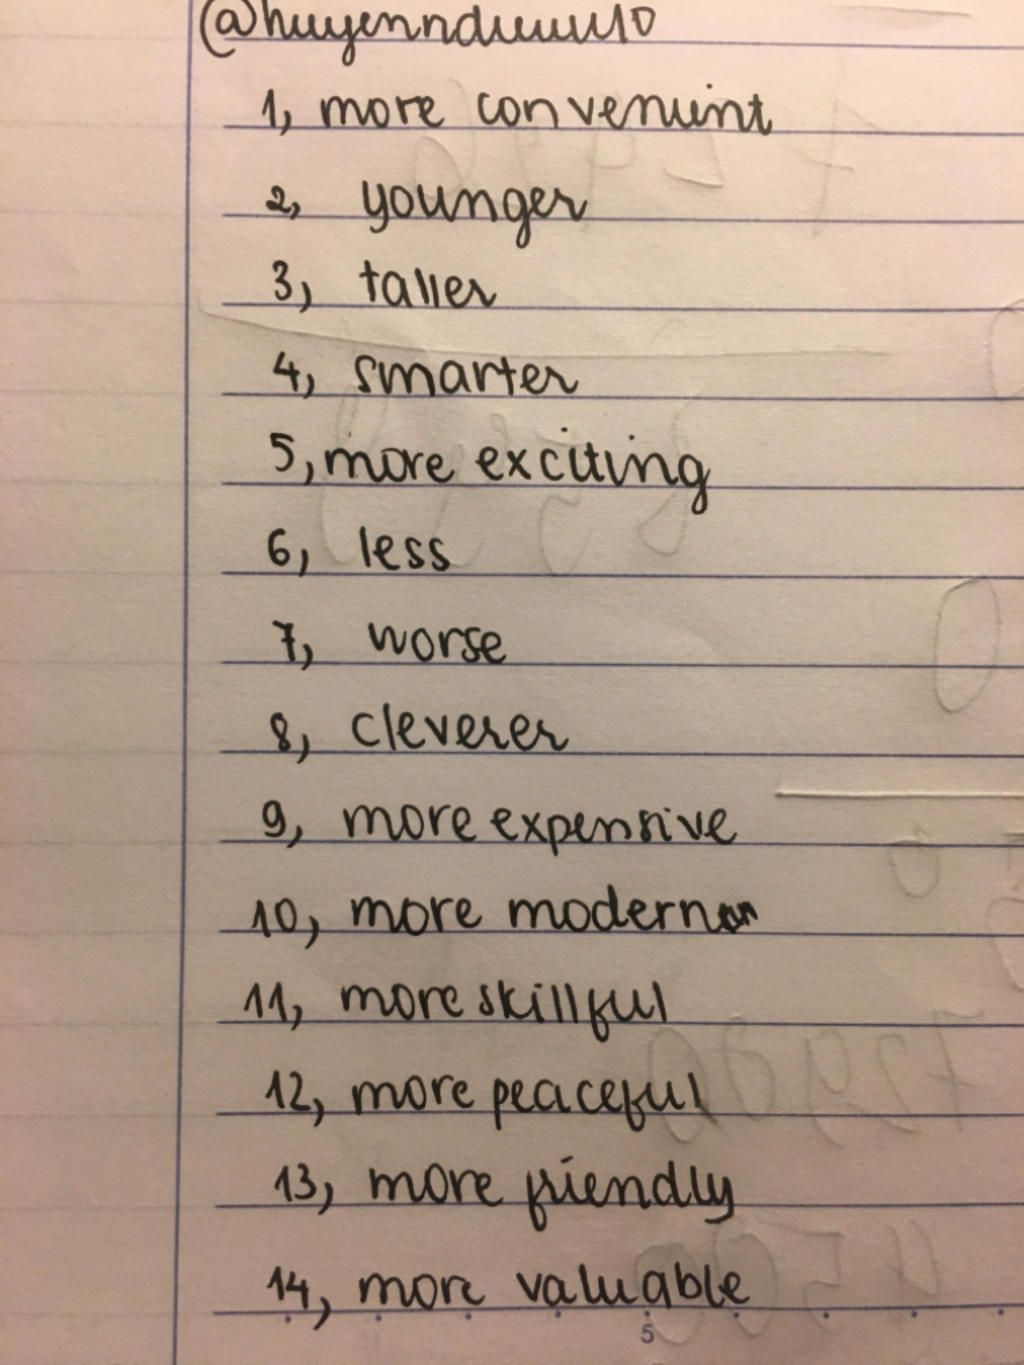 @huyennduuuu10
1, more convenient
2, younger
3, taller
4, smarter
5, more exciting
6, less
7, worse
8, cleverer
9, more expensive
10, more modern
11, more skillful
12, more peaceful
13, more friendly
14, more valuable
5